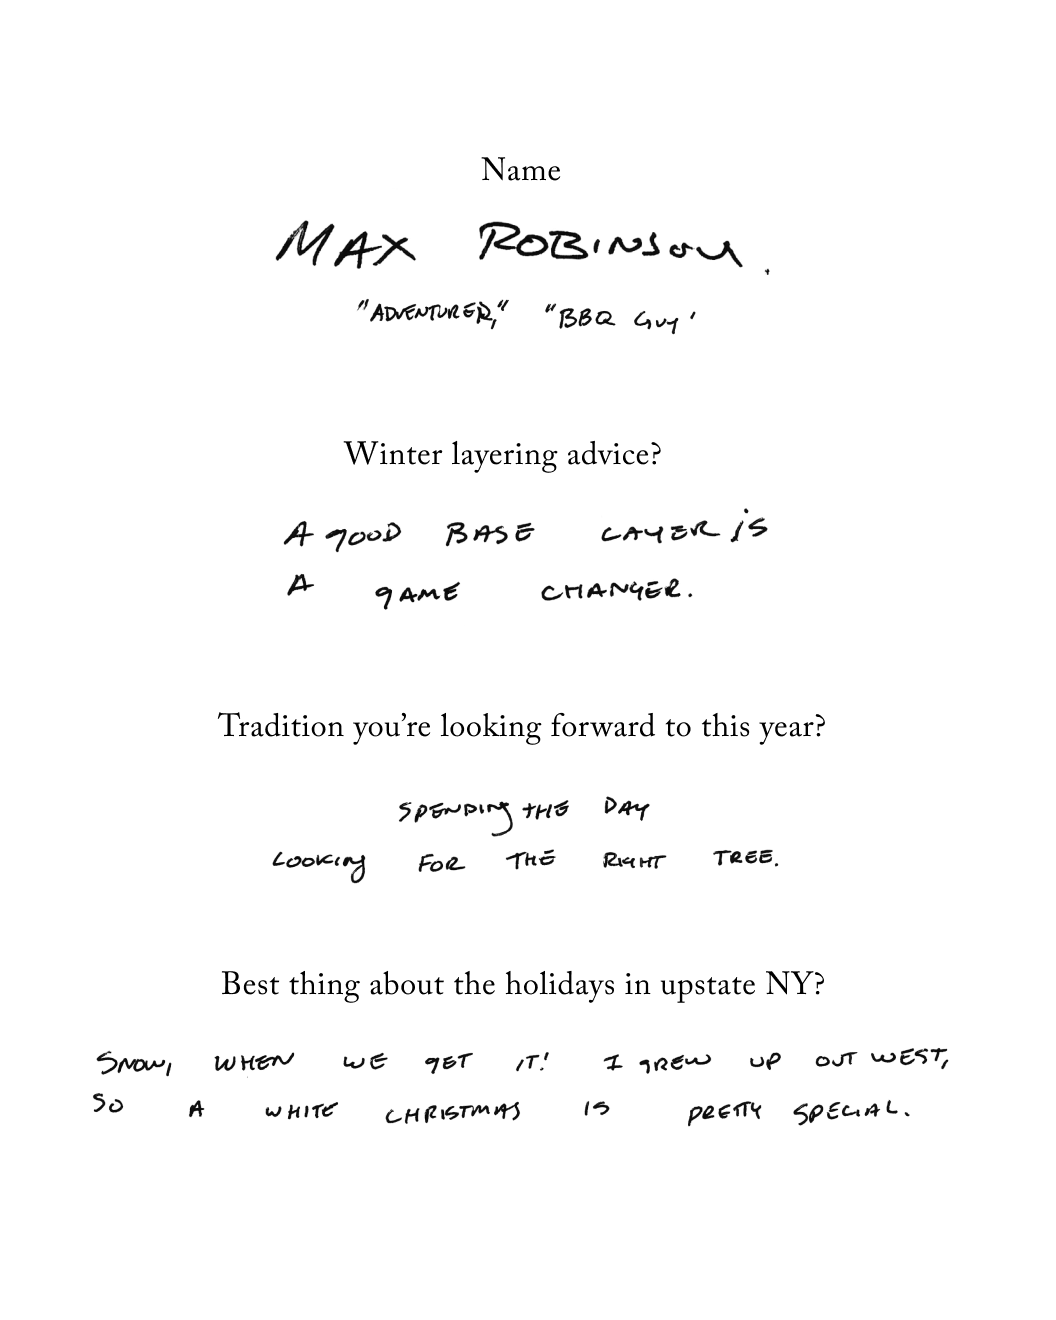 Name
MAX ROBINSON.
"ADVENTURER," "BBQ GUY'
Winter layering advice?
A gOOD BASE LAYER iS
A gAME CHANGER.
Tradition you’re looking forward to this year?
SPENDINg THE DAY
LOOKINg FOR THE RIGHT TREE.
Best thing about the holidays in upstate NY?
SNOW, WHEN WE gET IT! I gREW UP OUT WEST,
SO A WHITE CHRISTMAS IS PRETTY SPECIAL.